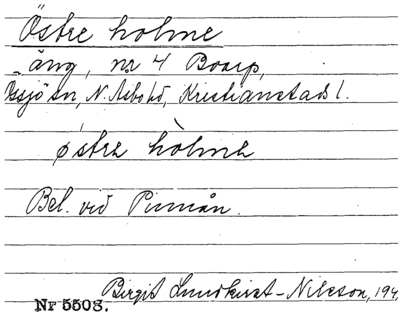 Östre holme
äng, nr 4 Boarp,
N. Åsbo hd, Kristianstads l.
östrə hòlmə
Bel. vid Pinnån.
Birgit Lundkvist-Nilsson, 194
Nr 5508.